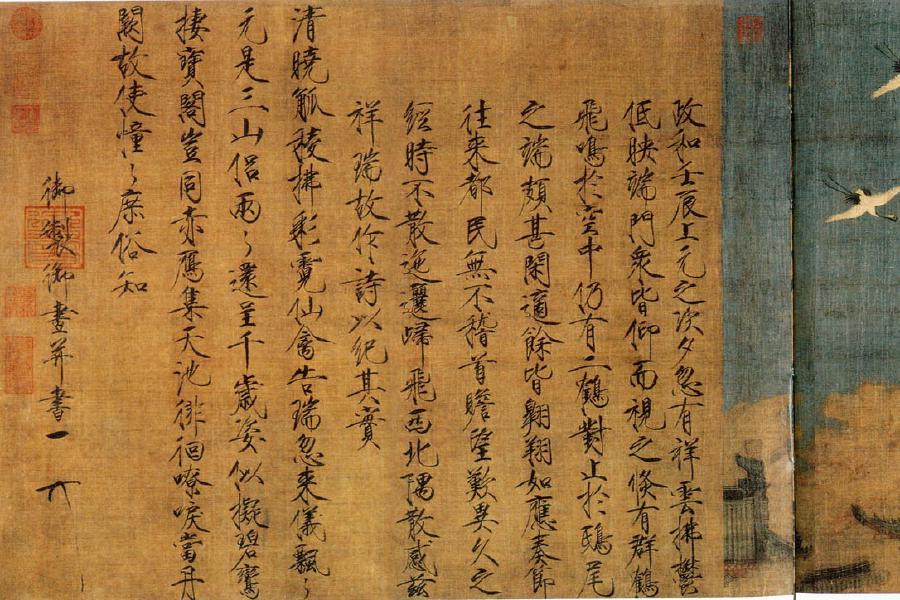 政和壬辰上元之次夕忽有祥雲拂鬱
低映端門衆皆仰而視之倐有群鶴
飛鳴於空中仍有二鶴對止於鴟尾
之端頗甚閑適餘皆翱翔如應奏節
往来都民無不稽首瞻望歎異久之
經時不散迤邐歸飛西北隅散感兹
祥瑞故作詩以紀其實
清曉觚稜拂彩霓仙禽告瑞忽来儀飄〻
元是三山侣兩〻還呈千歳姿似擬碧鸞
棲寶閣豈同赤鴈集天池徘徊嘹唳當丹
闕故使憧〻庶俗知
御製御畫并書